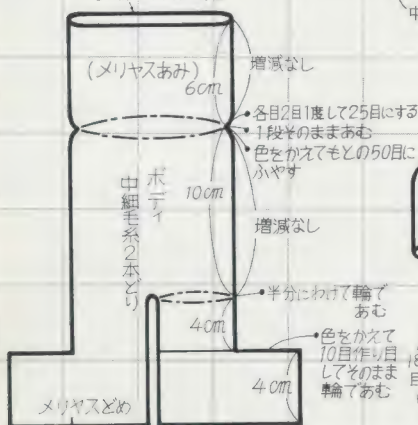 中
(メリヤスあみ)
増減なし
6cm
・各目2目1度して25目にする
・1段そのままあむ
・色をかえてもとの50目に
ふやす
ボディ
中細毛糸2本どり
10cm
増減なし
・半分にわけて輪で
あむ
4cm
・色をかえて
10目作り目
してそのまま
輪であむ
4cm
メリヤスどめ
目